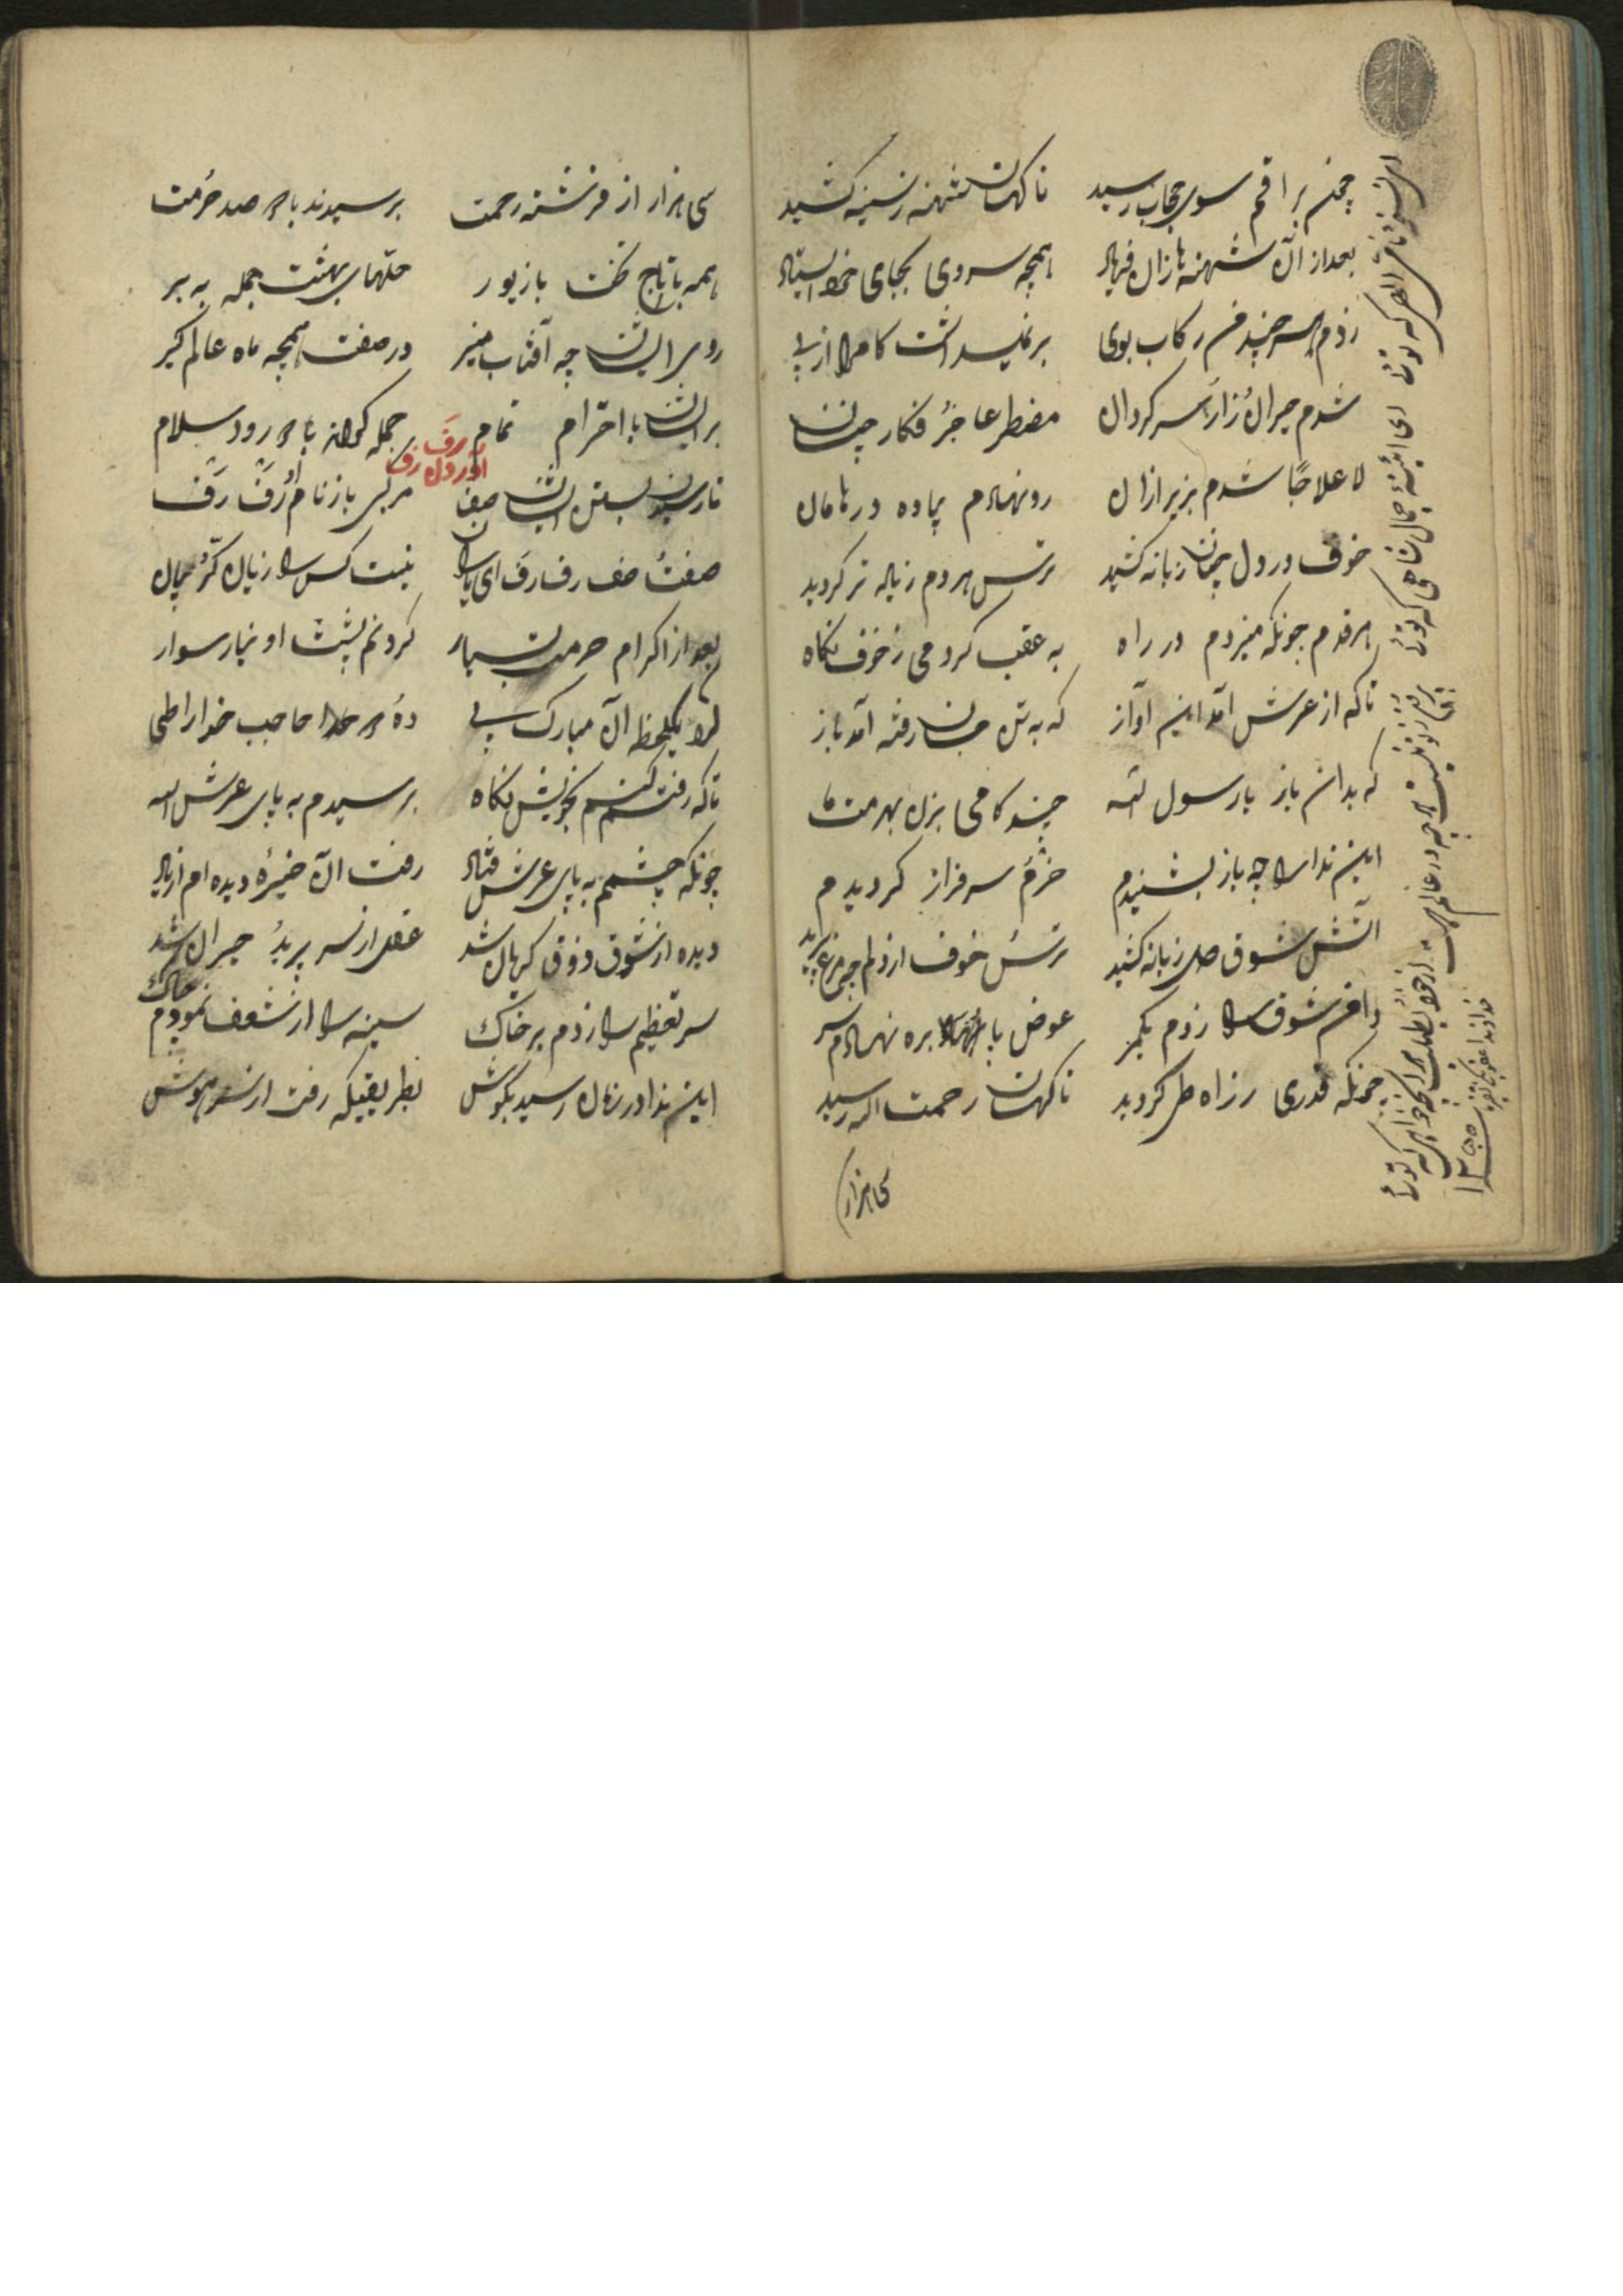 چون براقم سوی حجاب رسید ناکهان شیهه ز سینه کشید
بعد از آن شیهه بازان فریاد همچه سروی بجای خود استاد
زدم هر چند من رکاب بوی برنمیداشت کام را از پی
شدم حیران زار سرکردان مضطر عاجز فکار چنان
لا علاجا شدم بزیر ازان رو نهادم پیاده در هامان
خوف در دل چنان زبانه کشید ترس هر دم زیاده تر کردید
هر قدم چونکه میزدم در راه به عقب کردمی ز خوف نکاه
تا که از عرش آمد این آواز که به تن جان رفته آمد باز
که بدان باز یا رسول الله چند کامی بزن بهمت ما
این ندا را چه باز بشنیدم خرم سرفراز کردیدم
آتش شوق صد زبانه کشید ترس خوف از دلم چه مرغ پرید
دامن شوق را زدم بکمر عوض پا بره نهادم سر
چونکه قدری ز راه طی کردید ناکهان رحمت اله رسید
سی هزار
سی هزار از فرشته رحمت برسیدند با صد حرمت
همه با تاج تخت با زیور حلهای بهشت جمله به بر
روی ایشان چه آفتاب منیر در صفت همچه ماه عالم کیر
بر ایشان با احترام تمام جمله کردند با درود سلام
تا رسیدن بستن ایشان صف مرکبی باز نام او رف رف
آوردن رف رف
صفت صف رف رف ای یاران نیست کس را زبان کر بیان
بعد از اکرام حرمت بسیار کردنم پشت او نیاز سوار
به یکلحظه آن مبارک پی ده حاجب خدا را طی
تا که رفتم کنم بخویش نکاه برسیدم به پای عرش اله
چونکه چشمم به پای عرش فتاد رفت آن خیره دیده ام از یاد
دیده از شوق ذوق کریان شد عقل از سر پرید حیران شد
سر تعظیم را زدم بر خاک سینه را از شعف نمودم چاک
این ندا در زمان رسید بکوش بطریقیکه رفت از سر هوش
ای نسخه نامه الهی که توئی
ای آینه جمال شاهی که توئی
بیرون ز تو نیست هر چه در عالم هست
از خود بطلب هر آنچه خواهی که توئی
۱۲۵۵